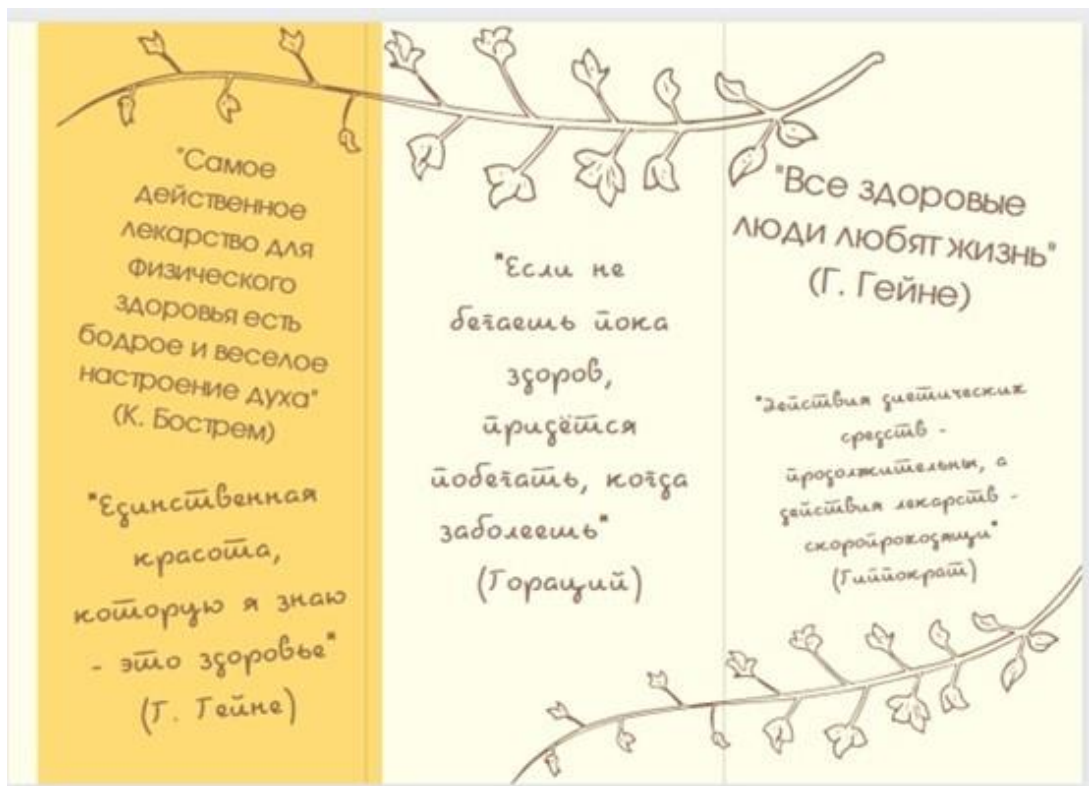 "Самое
действенное
лекарство для
физического
здоровья есть
бодрое и веселое
настроение духа"
(К. Бострем)
"Единственная
красота,
которую я знаю
- это здоровье"
(Г. Гейне)
"Если не
бегаешь пока
здоров,
придётся
побегать, когда
заболеешь"
(Гораций)
"Все здоровые
люди любят жизнь"
(Г. Гейне)
"Действия диетических
средств -
продолжительны, а
действия лекарств -
скоропроходящи"
(Гиппократ)